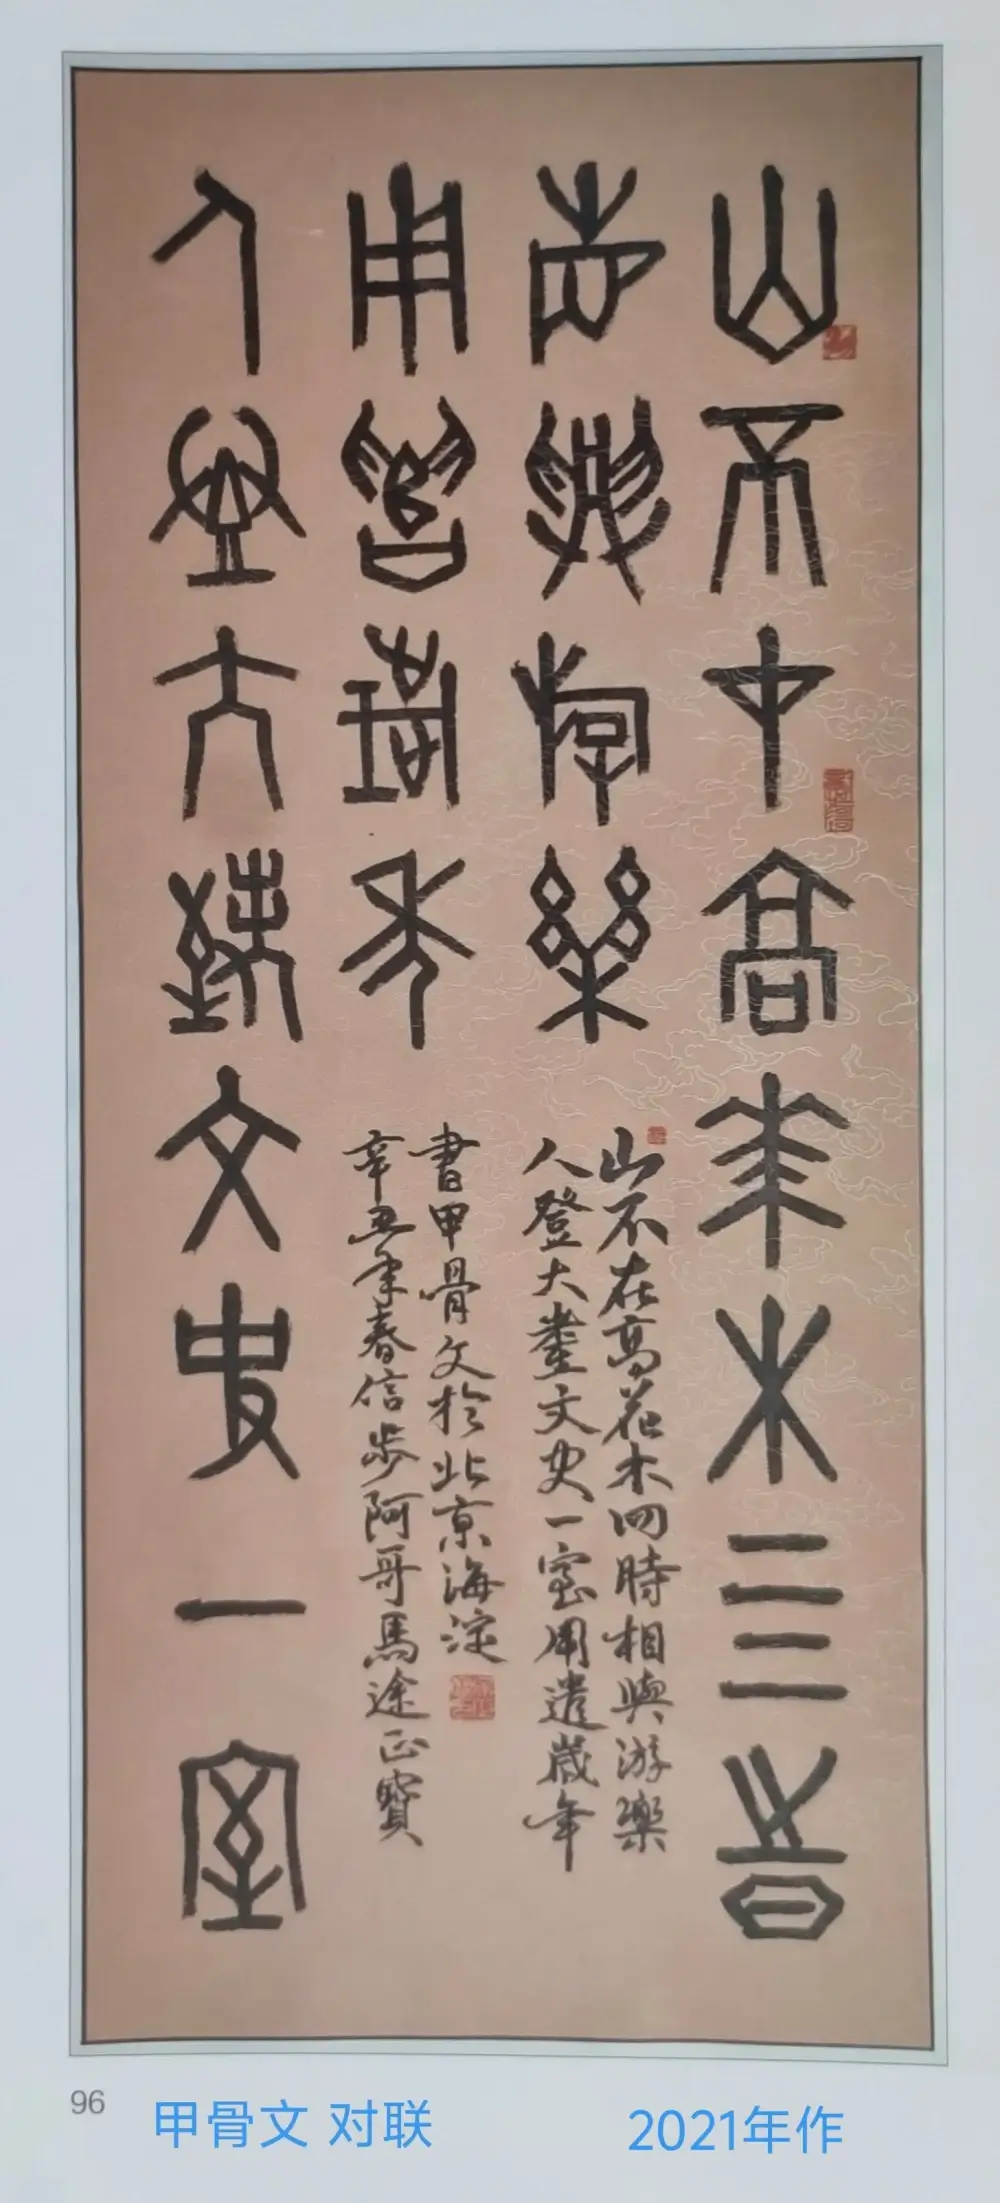 山不在高花木四時
相與游樂
人登大耋文史一室
用遣歲年
山不在高花木四時相與游樂
人登大耋文史一室用遣歲年
辛丑年春信步阿哥馬途正寶
書甲骨文於北京海淀
96
甲骨文 对联
2021年作